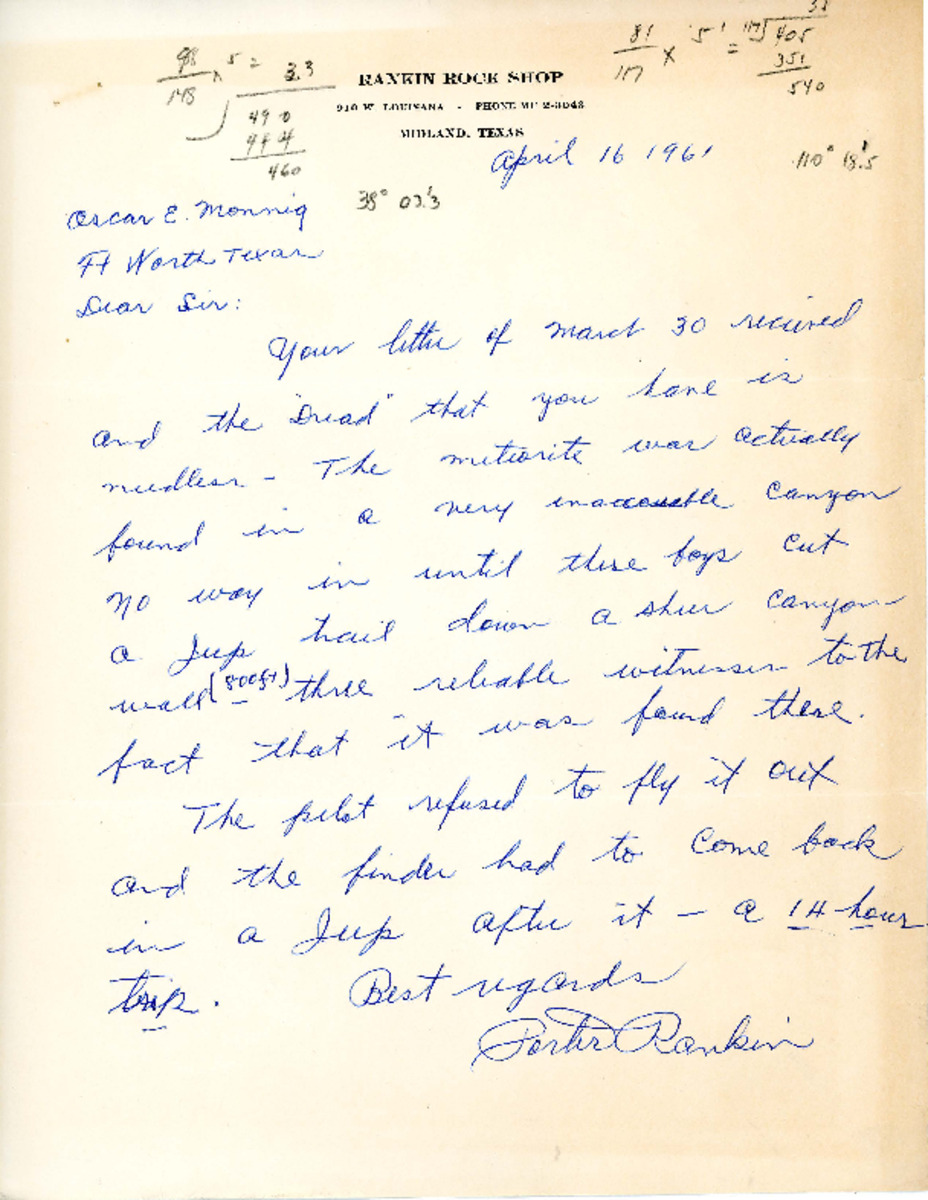 98/148 x 5 = 3.3
490
444
460
81/117 x 5' =
117 405
351
540
RANKIN ROCK SHOP
910 W. LOUISIANA - PHONE MU 2-3043
MIDLAND, TEXAS
April 16 1961
110° 18.'5
38° 03.'3
Oscar E. Monnig
Ft Worth Texas
Dear Sir:
Your letter of March 30 recieved
and the "Dread" that you have is
needless - The meteorite was actually
found in a very inaccessible canyon
no way in until these boys cut
a Jeep trail down a sheer canyon
wall (800ft) three reliable witnesses to the
fact that it was found there.
The pilot refused to fly it out
and the finder had to come back
in a Jeep after it - a 14 hour
trip.
Best regards
Porter Rankin